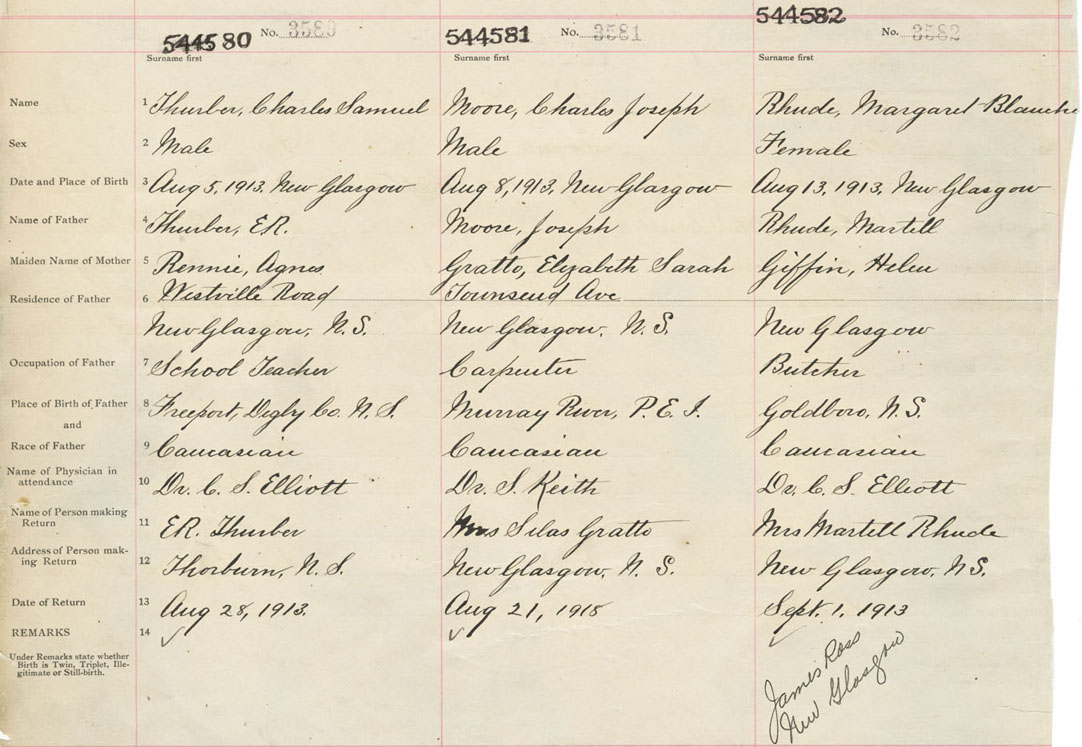 544580 No. 3580 544581 No. 3581 544582 No. 3582
Surname first Surname first Surname first
Name 1 Thurber, Charles Samuel Moore, Charles Joseph Rhude, Margaret Blanche
Sex 2 Male Male Female
Date and Place of Birth 3 Aug 5, 1913, New Glasgow Aug 8, 1913, New Glasgow Aug 13, 1913, New Glasgow
Name of Father 4 Thurber, E.R. Moore, Joseph Rhude, Martell
Maiden Name of Mother 5 Rennie, Agnes Gratto, Elizabeth Sarah Giffin, Helen
Residence of Father 6 Westville Road Townsend Ave
New Glasgow, N.S. New Glasgow, N.S. New Glasgow
Occupation of Father 7 School Teacher Carpenter Butcher
Place of Birth of Father 8 Freeport, Digby Co. N.S. Murray River, P.E.I. Goldboro, N.S.
and
Race of Father 9 Caucasian Caucasian Caucasian
Name of Physician in
attendance 10 Dr. C. S. Elliott Dr. S. Keith Dr. C. S. Elliott
Name of Person making
Return 11 E.R. Thurber Mrs Silas Gratto Mrs Martell Rhude
Address of Person mak-
ing Return 12 Thorburn, N.S. New Glasgow, N.S. New Glasgow, N.S.
Date of Return 13 Aug 28, 1913. Aug 21, 1915 Sept. 1, 1913
REMARKS 14
Under Remarks state whether
Birth is Twin, Triplet, Ille-
gitimate or Still-birth.
James Ross
New Glasgow